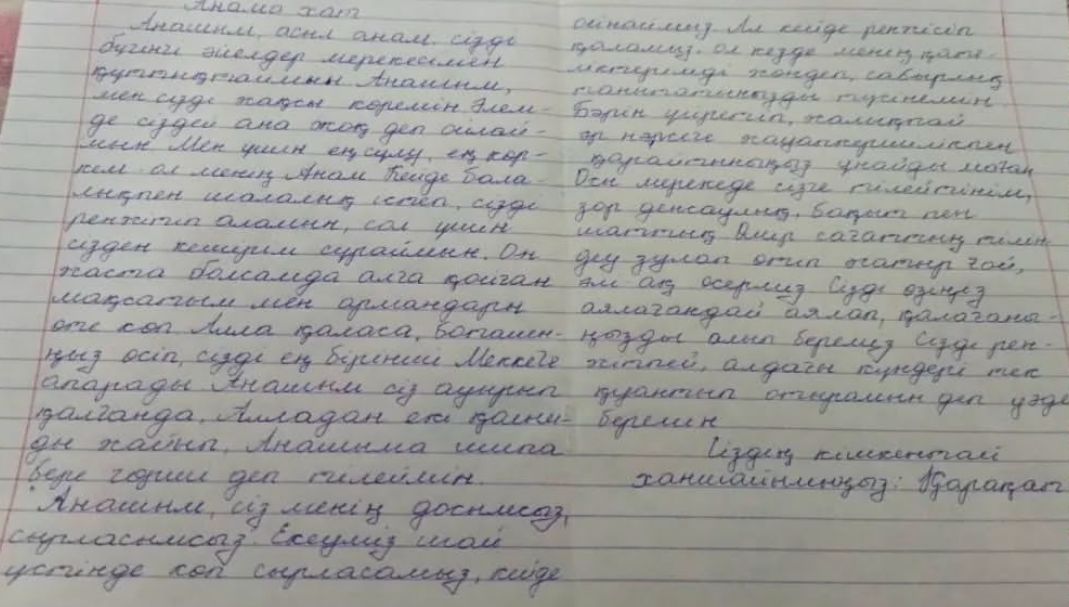 Анама хат
Анашым, асыл анам. сізді
бүгінгі әйелдер мерекесімен
құттықтаймын. Анашым,
мен сізді жақсы көремін. Әлем-
де сіздей ана жоқ деп ойлай-
мын. Мен үшін ең сұлу, ең көр-
кем ол менің Анам. Кейде бала-
лықпен шалалық істеп, сізді
ренжітіп аламын, сол үшін
сізден кешірім сұраймын. Он
жаста болсамда алға қойған
мақсатым мен армандарым
өте көп. Алла қаласа, боташы-
ңыз өсіп, сізді ең бірінші Меккеге
апарады. Анашым сіз ауырып
қалғанда, Алладан екі қолым-
ды жайып, Анашыма шипа
бере гөрші деп тілеймін.
Анашым, сіз менің досымсыз,
сырласымсыз. Екеуміз шай
үстінде көп сырласамыз, кейде
ойнаймыз. Ал кейде ренжісіп
қаламыз. ол кезде менің қате-
ліктерімді жөндеп, сабырлық
танытатыныңызды түсінемін.
Бәрін үйретіп, жалықпай
әр нәрсеге жауапкершілікпен
қарайтыныңыз ұнайды маған
Осы мерекеде сізге тілейтінім,
зор денсаулық, бақыт пен
шаттық. Өмір сағаттың тілін
деу зулап өтіп жатыр ғой,
әлі ақ өсерміз. Сізді өзіңіз
аялағандай аялап, қалағаны-
ңызды алып береміз. Сізді рен-
жітпей, алдағы күндері тек
қуантып отырамын деп уәде
беремін.
Сіздің кішкентай
ханшайымыңыз: Қарақат